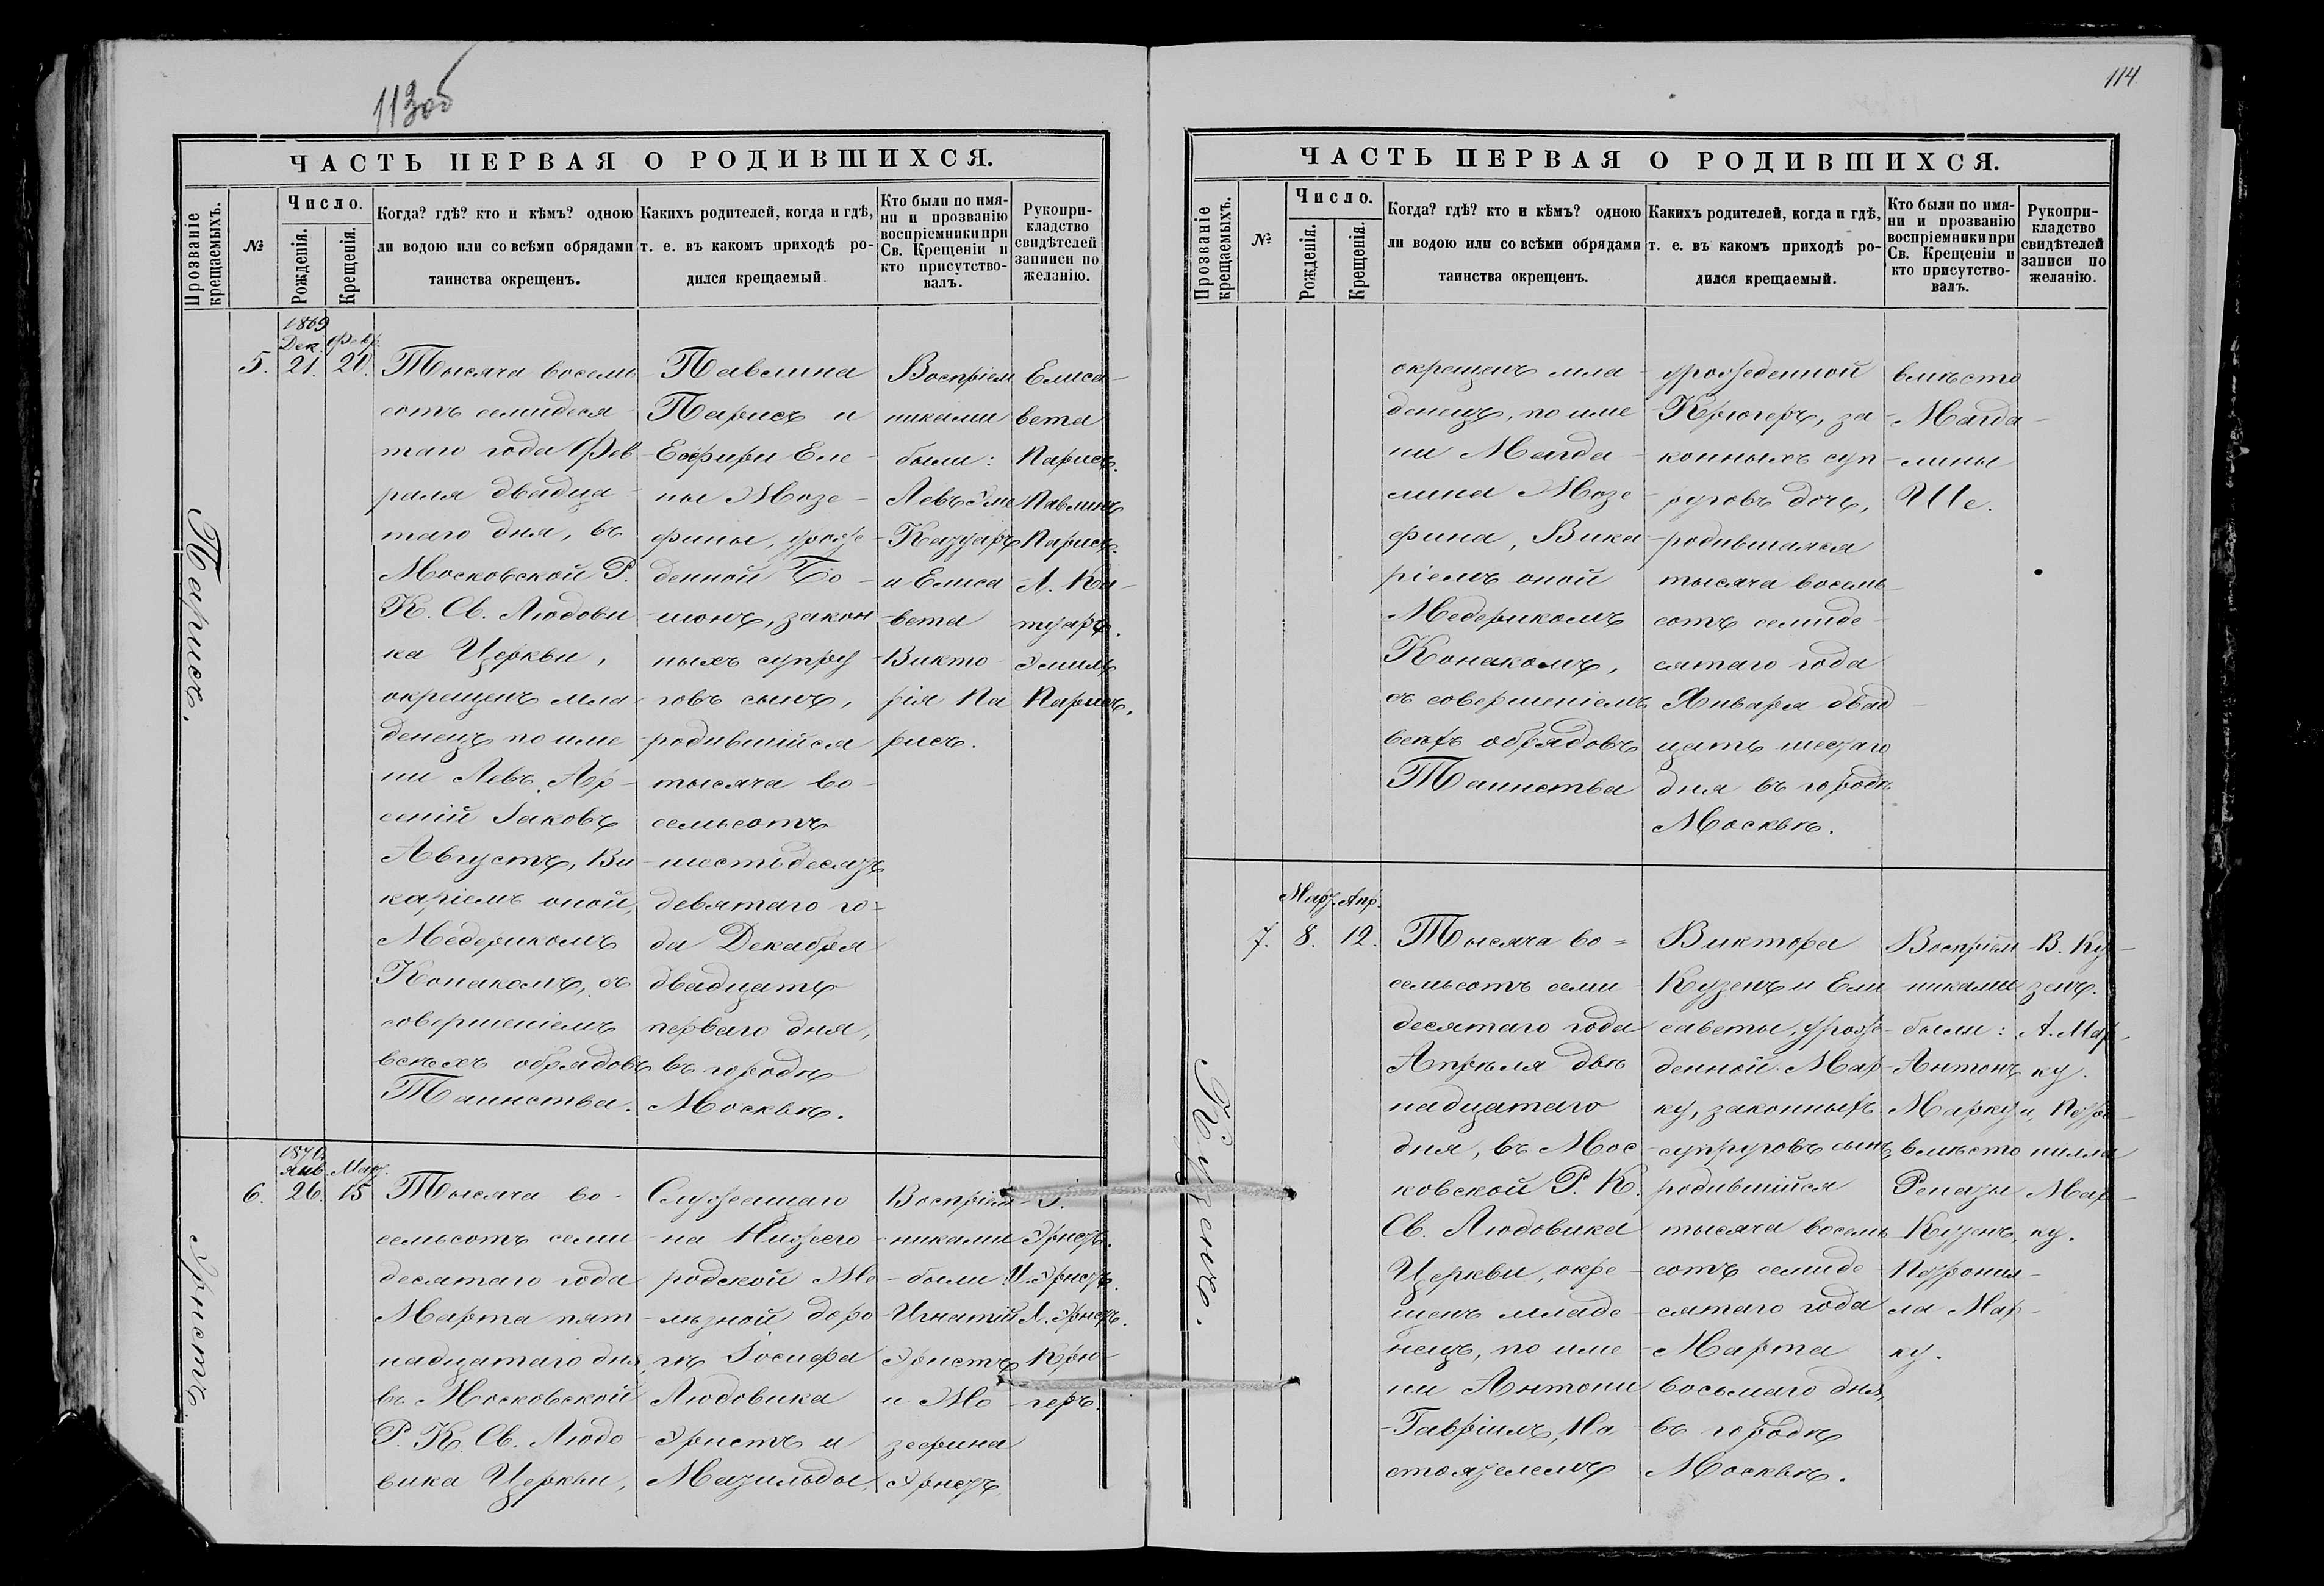 113об
ЧАСТЬ ПЕРВАЯ О РОДИВШИХСЯ.
Прозваніе крещаемыхъ.
№
Число.
Рожденія.
Крещенія.
Когда? гдѣ? кто и кѣмъ? одною
ли водою или со всѣми обрядами
таинства окрещенъ.
Какихъ родителей, когда и гдѣ,
т. е. въ какомъ приходѣ ро-
дился крещаемый.
Кто были по имя-
ни и прозванію
воспріемники при
Св. Крещеніи и
кто присутство-
валъ.
Рукопри-
кладство
свидѣтелей
записи по
желанію.
Парисъ.
5.
1869
Дек.
21.
Февр.
20.
Тысяча восемь
сотъ семидеся
таго года Фев
раля двадца
таго дня, въ
Московской Р.
К. Св. Людови
ка Церкви,
окрещенъ мла
денецъ по име
ни Левъ, Ар-
сеній Іаковъ
Августъ, Ви
каріемъ оной,
Медерикомъ
Конакомъ, съ
совершеніемъ
всѣхъ обрядовъ
Таинства.
Павлина
Парисъ и
Елефири Еле
ны Жозе-
фины, урож-
денной Бо-
шонъ, закон
ныхъ супру
говъ сынъ,
родившійся
тысяча во-
семьсотъ
шестьдесятъ
девятаго го-
да Декабря
двадцать
перваго дня,
въ городѣ
Москвѣ.
Воспріем
никами
были:
Левъ Эме
Катуаръ
и Елиса
вета
Викто
рія Па
рисъ.
Елиса-
вета
Парисъ.
Павлинъ
Парисъ.
Л. Ка-
туаръ.
Эмиль
Парисъ.
Эрнстъ.
6.
1870.
Янв.
26.
Март.
15
Тысяча во-
семьсотъ семи
десятаго года
Марта пят
надцатаго дня
въ Московской
Р. К. Св. Людо
вика Церкви,
Служащаго
на Нижего
родской Же
лѣзной доро
гѣ Іосифа
Людовика
Эрнстъ и
Матильды,
Воспріем
никами
были:
Игнатій
Эрнстъ
и Жо
зефина
Эрнстъ
І.
Эрнстъ.
И. Эрнстъ.
Л. Эрнстъ.
Крю-
геръ.
114.
ЧАСТЬ ПЕРВАЯ О РОДИВШИХСЯ.
Прозваніе крещаемыхъ.
№
Число.
Рожденія.
Крещенія.
Когда? гдѣ? кто и кѣмъ? одною
ли водою или со всѣми обрядами
таинства окрещенъ.
Какихъ родителей, когда и гдѣ,
т. е. въ какомъ приходѣ ро-
дился крещаемый.
Кто были по имя-
ни и прозванію
воспріемники при
Св. Крещеніи и
кто присутство-
валъ.
Рукопри-
кладство
свидѣтелей
записи по
желанію.
окрещенъ мла
денецъ, по име
ни Магда
лина Жозе
фина, Вика
ріемъ оной
Медерикомъ
Конакомъ,
съ совершеніемъ
всѣхъ обрядовъ
Таинства
урожденной
Крюгеръ, за
конныхъ суп
руговъ дочь,
родившаяся
тысяча восемь
сотъ семиде
сятаго года
Января двад
цать шестаго
дня въ городѣ
Москвѣ.
вмѣсто
Магда-
лины
Ше.
Кузенъ.
7.
Март.
8.
Апр.
12.
Тысяча во=
семьсотъ семи
десятаго года
Апрѣля двѣ
надцатаго
дня, въ Мос
ковской Р. К.
Св. Людовика
Церкви, окре
щенъ младе
нецъ, по име
ни Антони
Гавріилъ, На
стоятелемъ
Виктора
Кузенъ и Ели
саветы, урож
денной Мар
ку, законныхъ
супруговъ сынъ,
родившійся
тысяча восемь
сотъ семиде
сятаго года
Марта
восьмаго дня,
въ городѣ
Москвѣ.
Воспріем
никами
были:
Антонъ
Марку и,
вмѣсто
Ренаты
Кузенъ,
Петронил-
ла Мар-
ку.
В. Ку-
зенъ.
А. Мар-
ку.
Петро-
нилла
Мар-
ку.